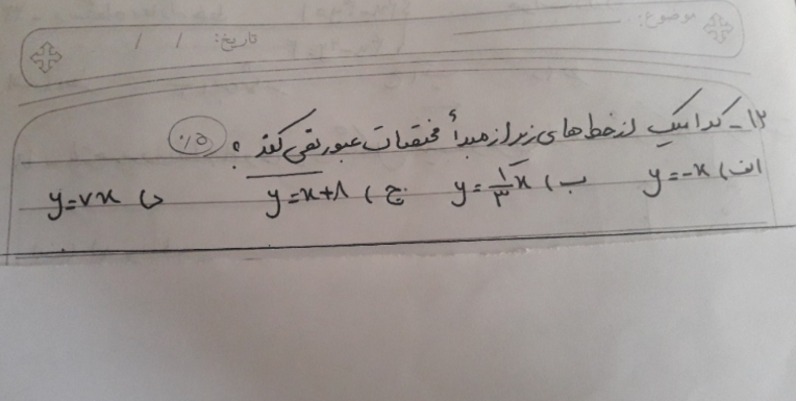 موضوع:
تاریخ: / /
۱۲- کدامیک از خط های زیر از مبدأ مختصات عبور نمی کند؟ (۰/۵)
الف) y=-x ب) y=\frac{۱}{۳}x ج) y=x+۸ د) y=۷x